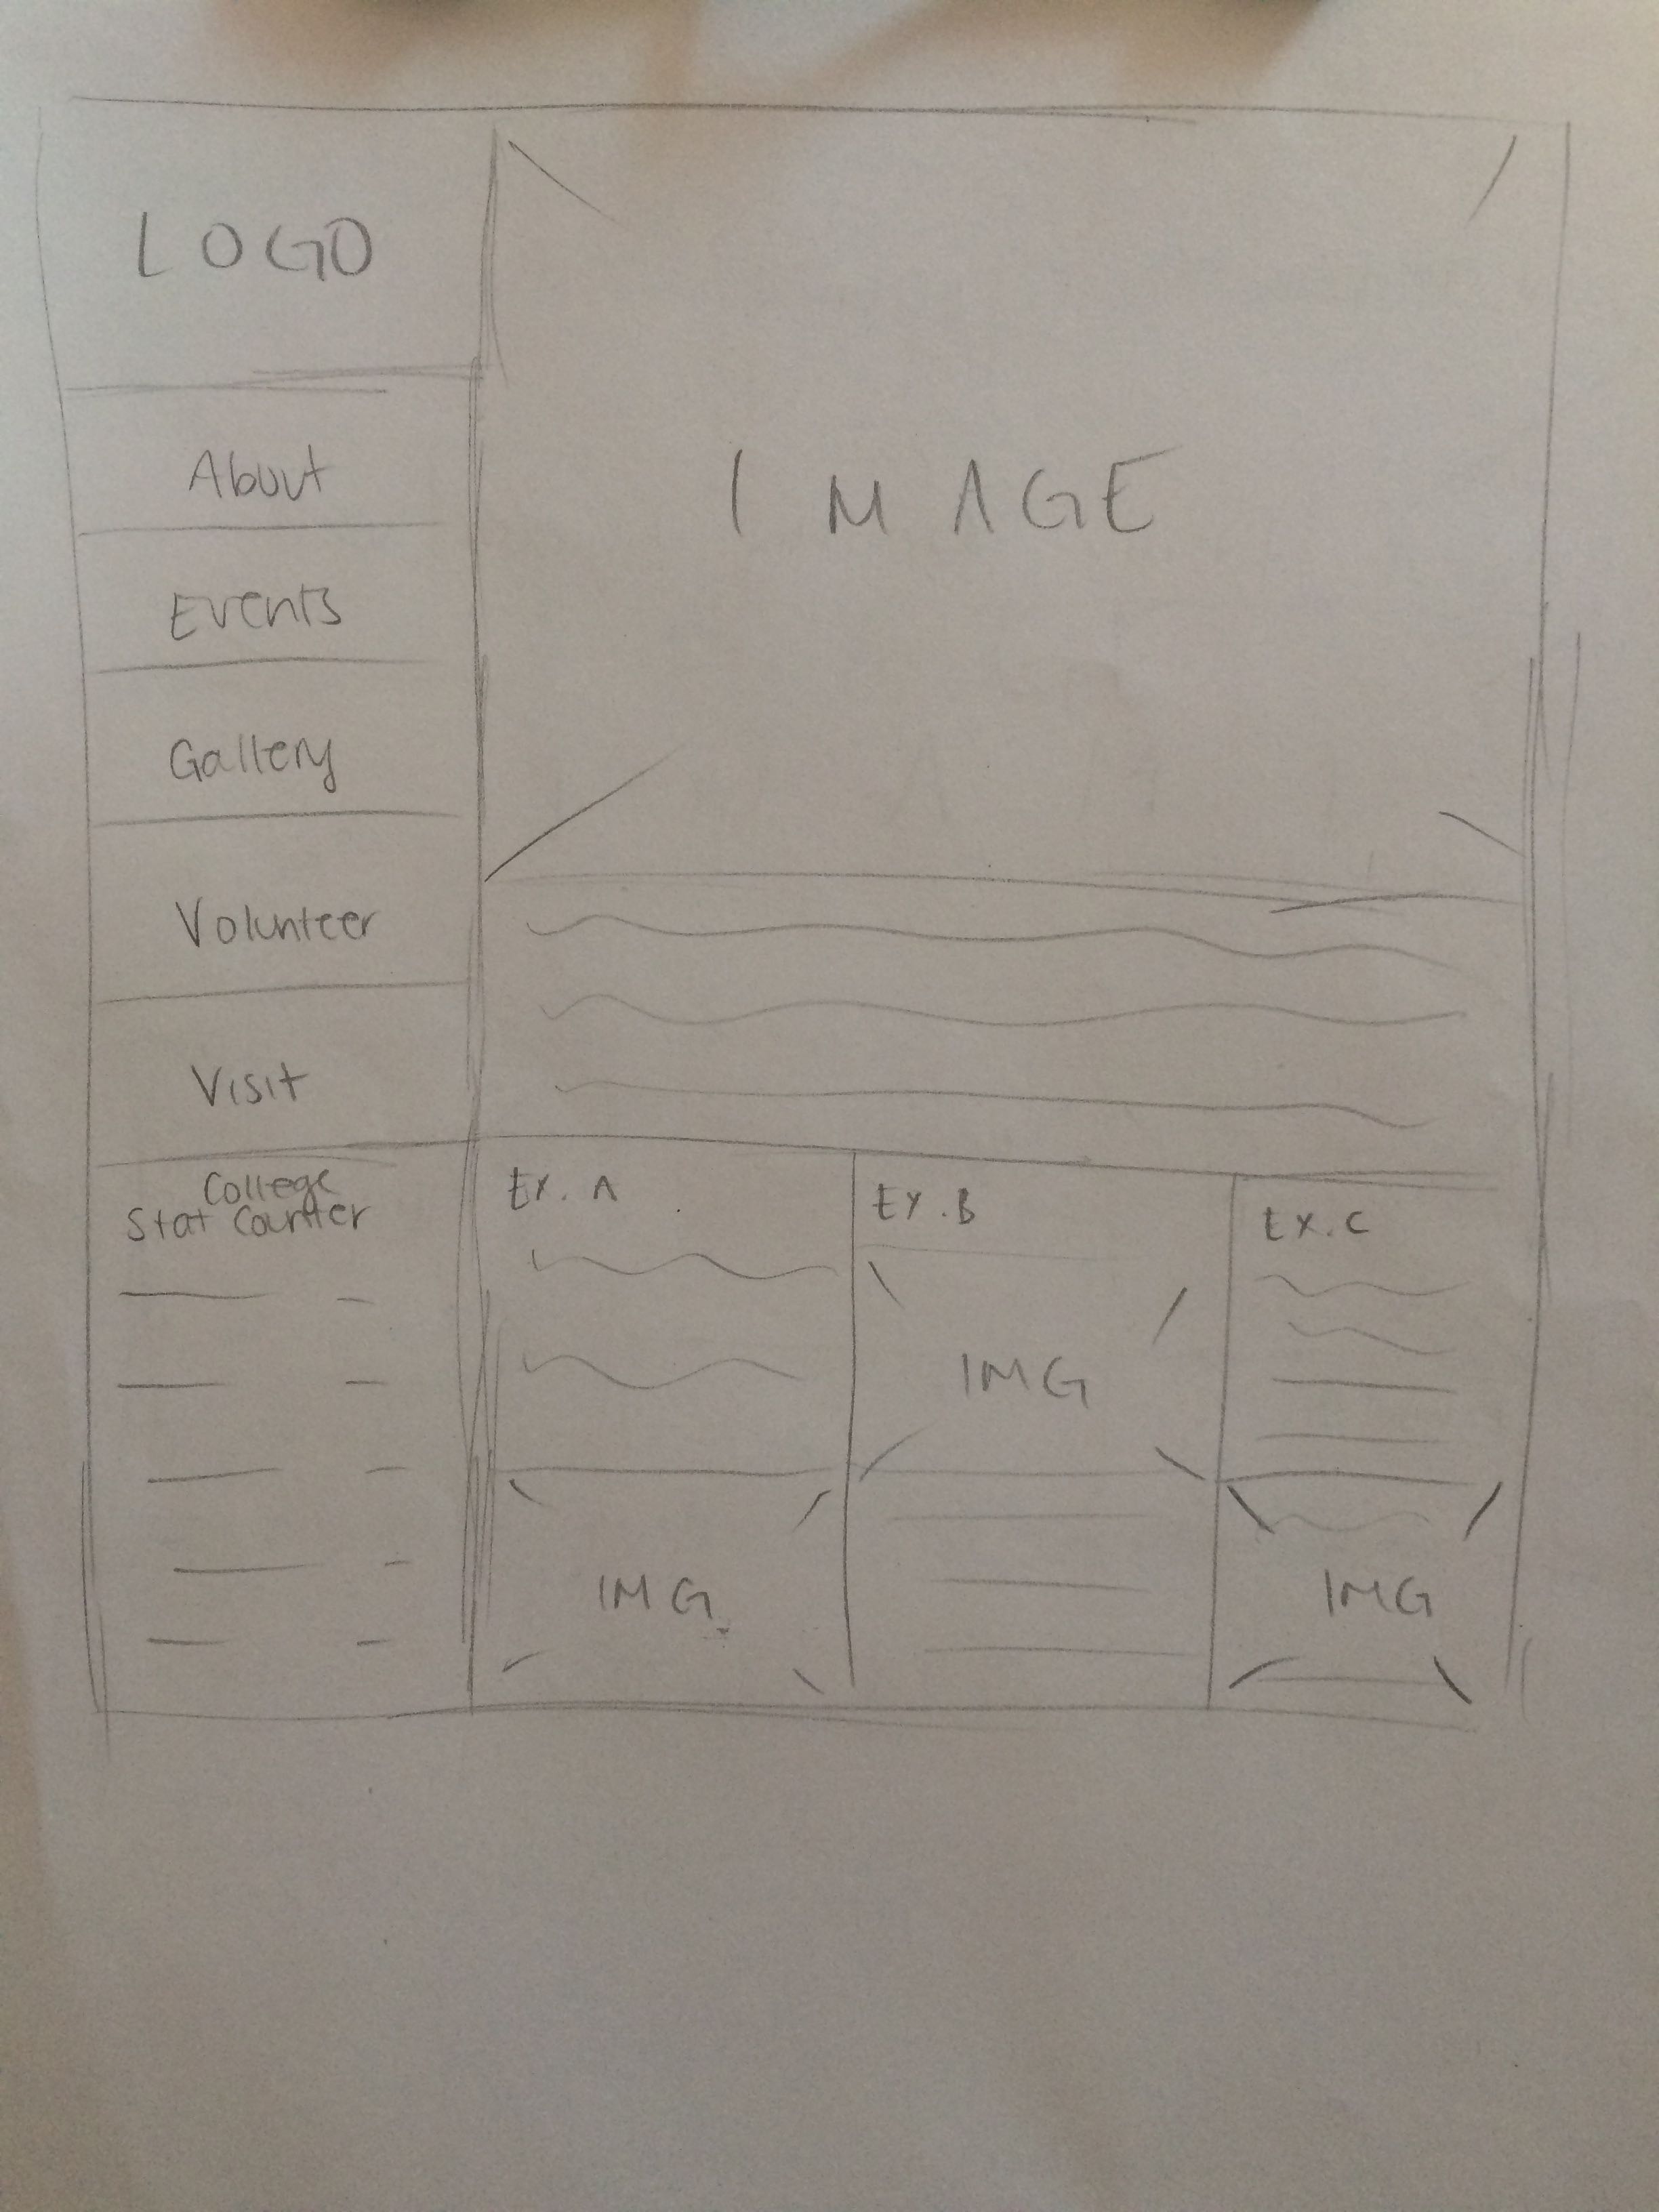 LOGO
About
Events
Gallery
Volunteer
Visit
College
Stat Counter
IMAGE
Ex. A
IMG
Ex. B
IMG
Ex. C
IMG